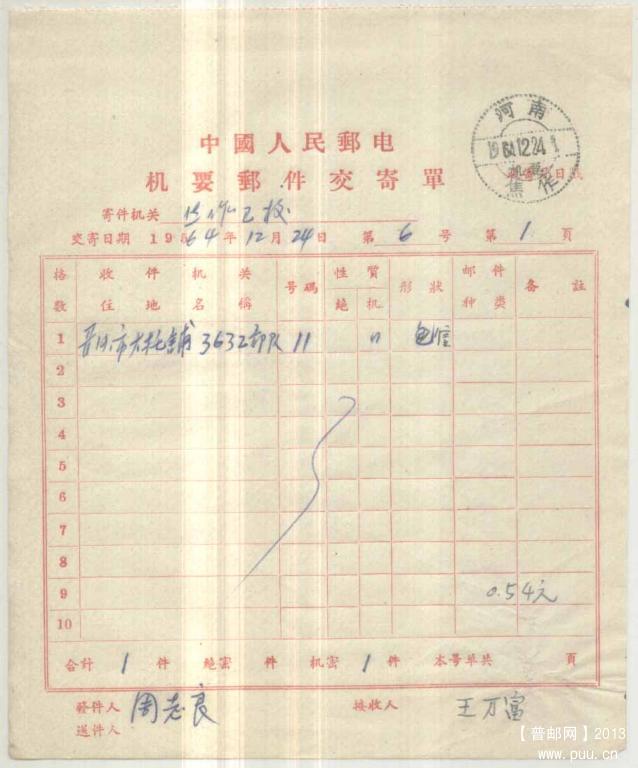 河南
1964.12.24
焦作
中國人民郵电
机要郵件交寄單
寄件机关
交寄日期 1964年12月24日 第6号 第1頁
格数 收件机关 住地名稱 号碼 性質 绝 机 形狀 邮件种类 备註
1 市大托鋪3632部队 11 〃
2
3
4
5
6
7
8
9 0.54元
10
合計 1 件 绝密 件 机密 1 件 本号单共 頁
發件人 周志良 接收人 王万富
送件人
【普邮网】2013
www.puu.cn